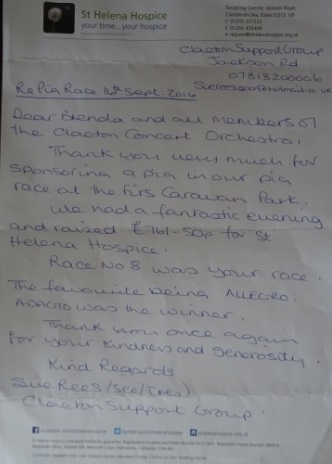 St Helena Hospice
your time... your hospice
Clacton Support Group
Jackson Rd
Re Pig Race 16th Sept: 2016
Dear Brenda and all members of
the Clacton Concert Orchestra,
Thank you very much for
sponsoring a pig in our pig
race at the Firs Caravan Park.
We had a fantastic evening
and raised £761-50p for St
Helena Hospice.
Race No 8 was your race.
The favourite being ALLEGRO.
ADAGIO was the winner.
Thank you once again
for your kindness and generosity.
Kind Regards
Sue Rees
Clacton Support Group.